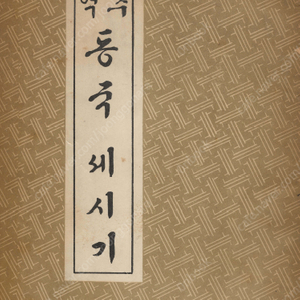 역주
동국세시기